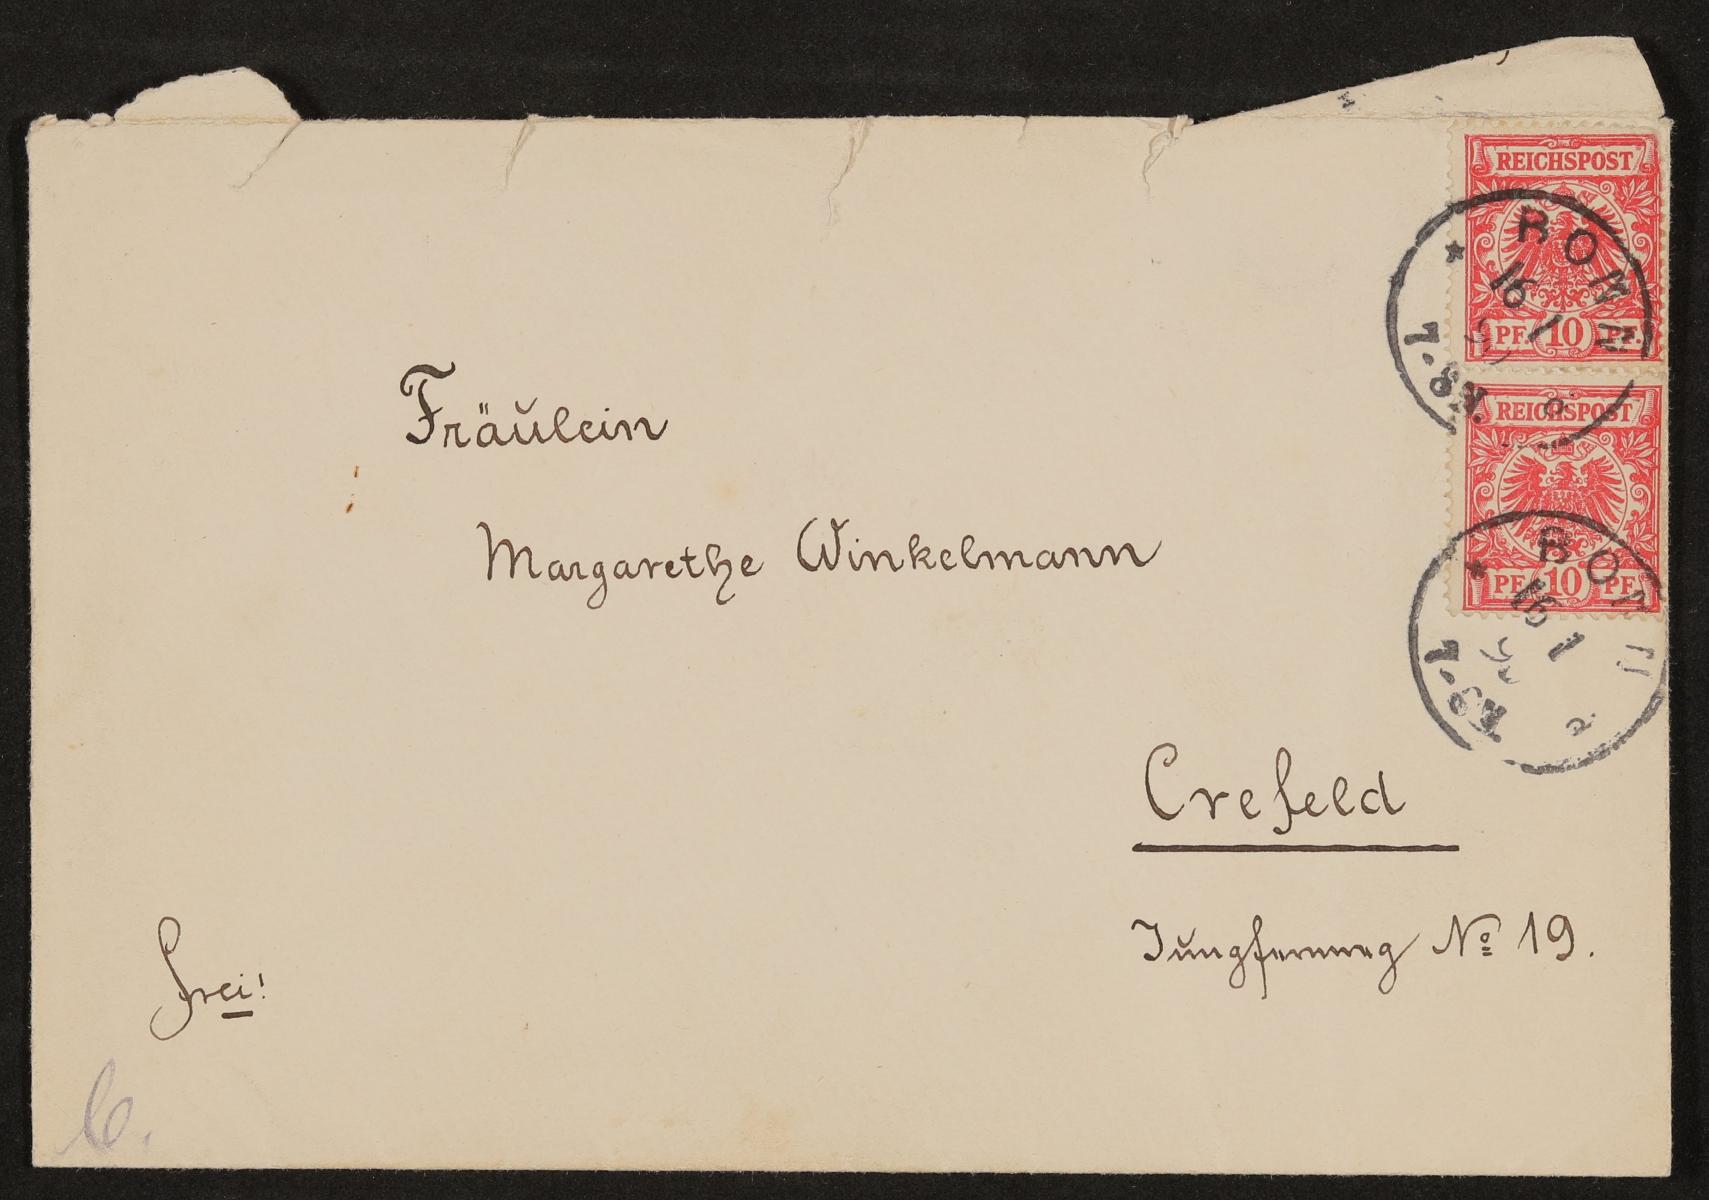 REICHSPOST
PF. 10 PF.
BONN
16 1
7-8 N.
REICHSPOST
PF. 10 PF.
BONN
16 1
7-8 N.
Fräŭlein
Margarethe Winkelmann
Crefeld
Jŭngfernweg No 19.
frei!